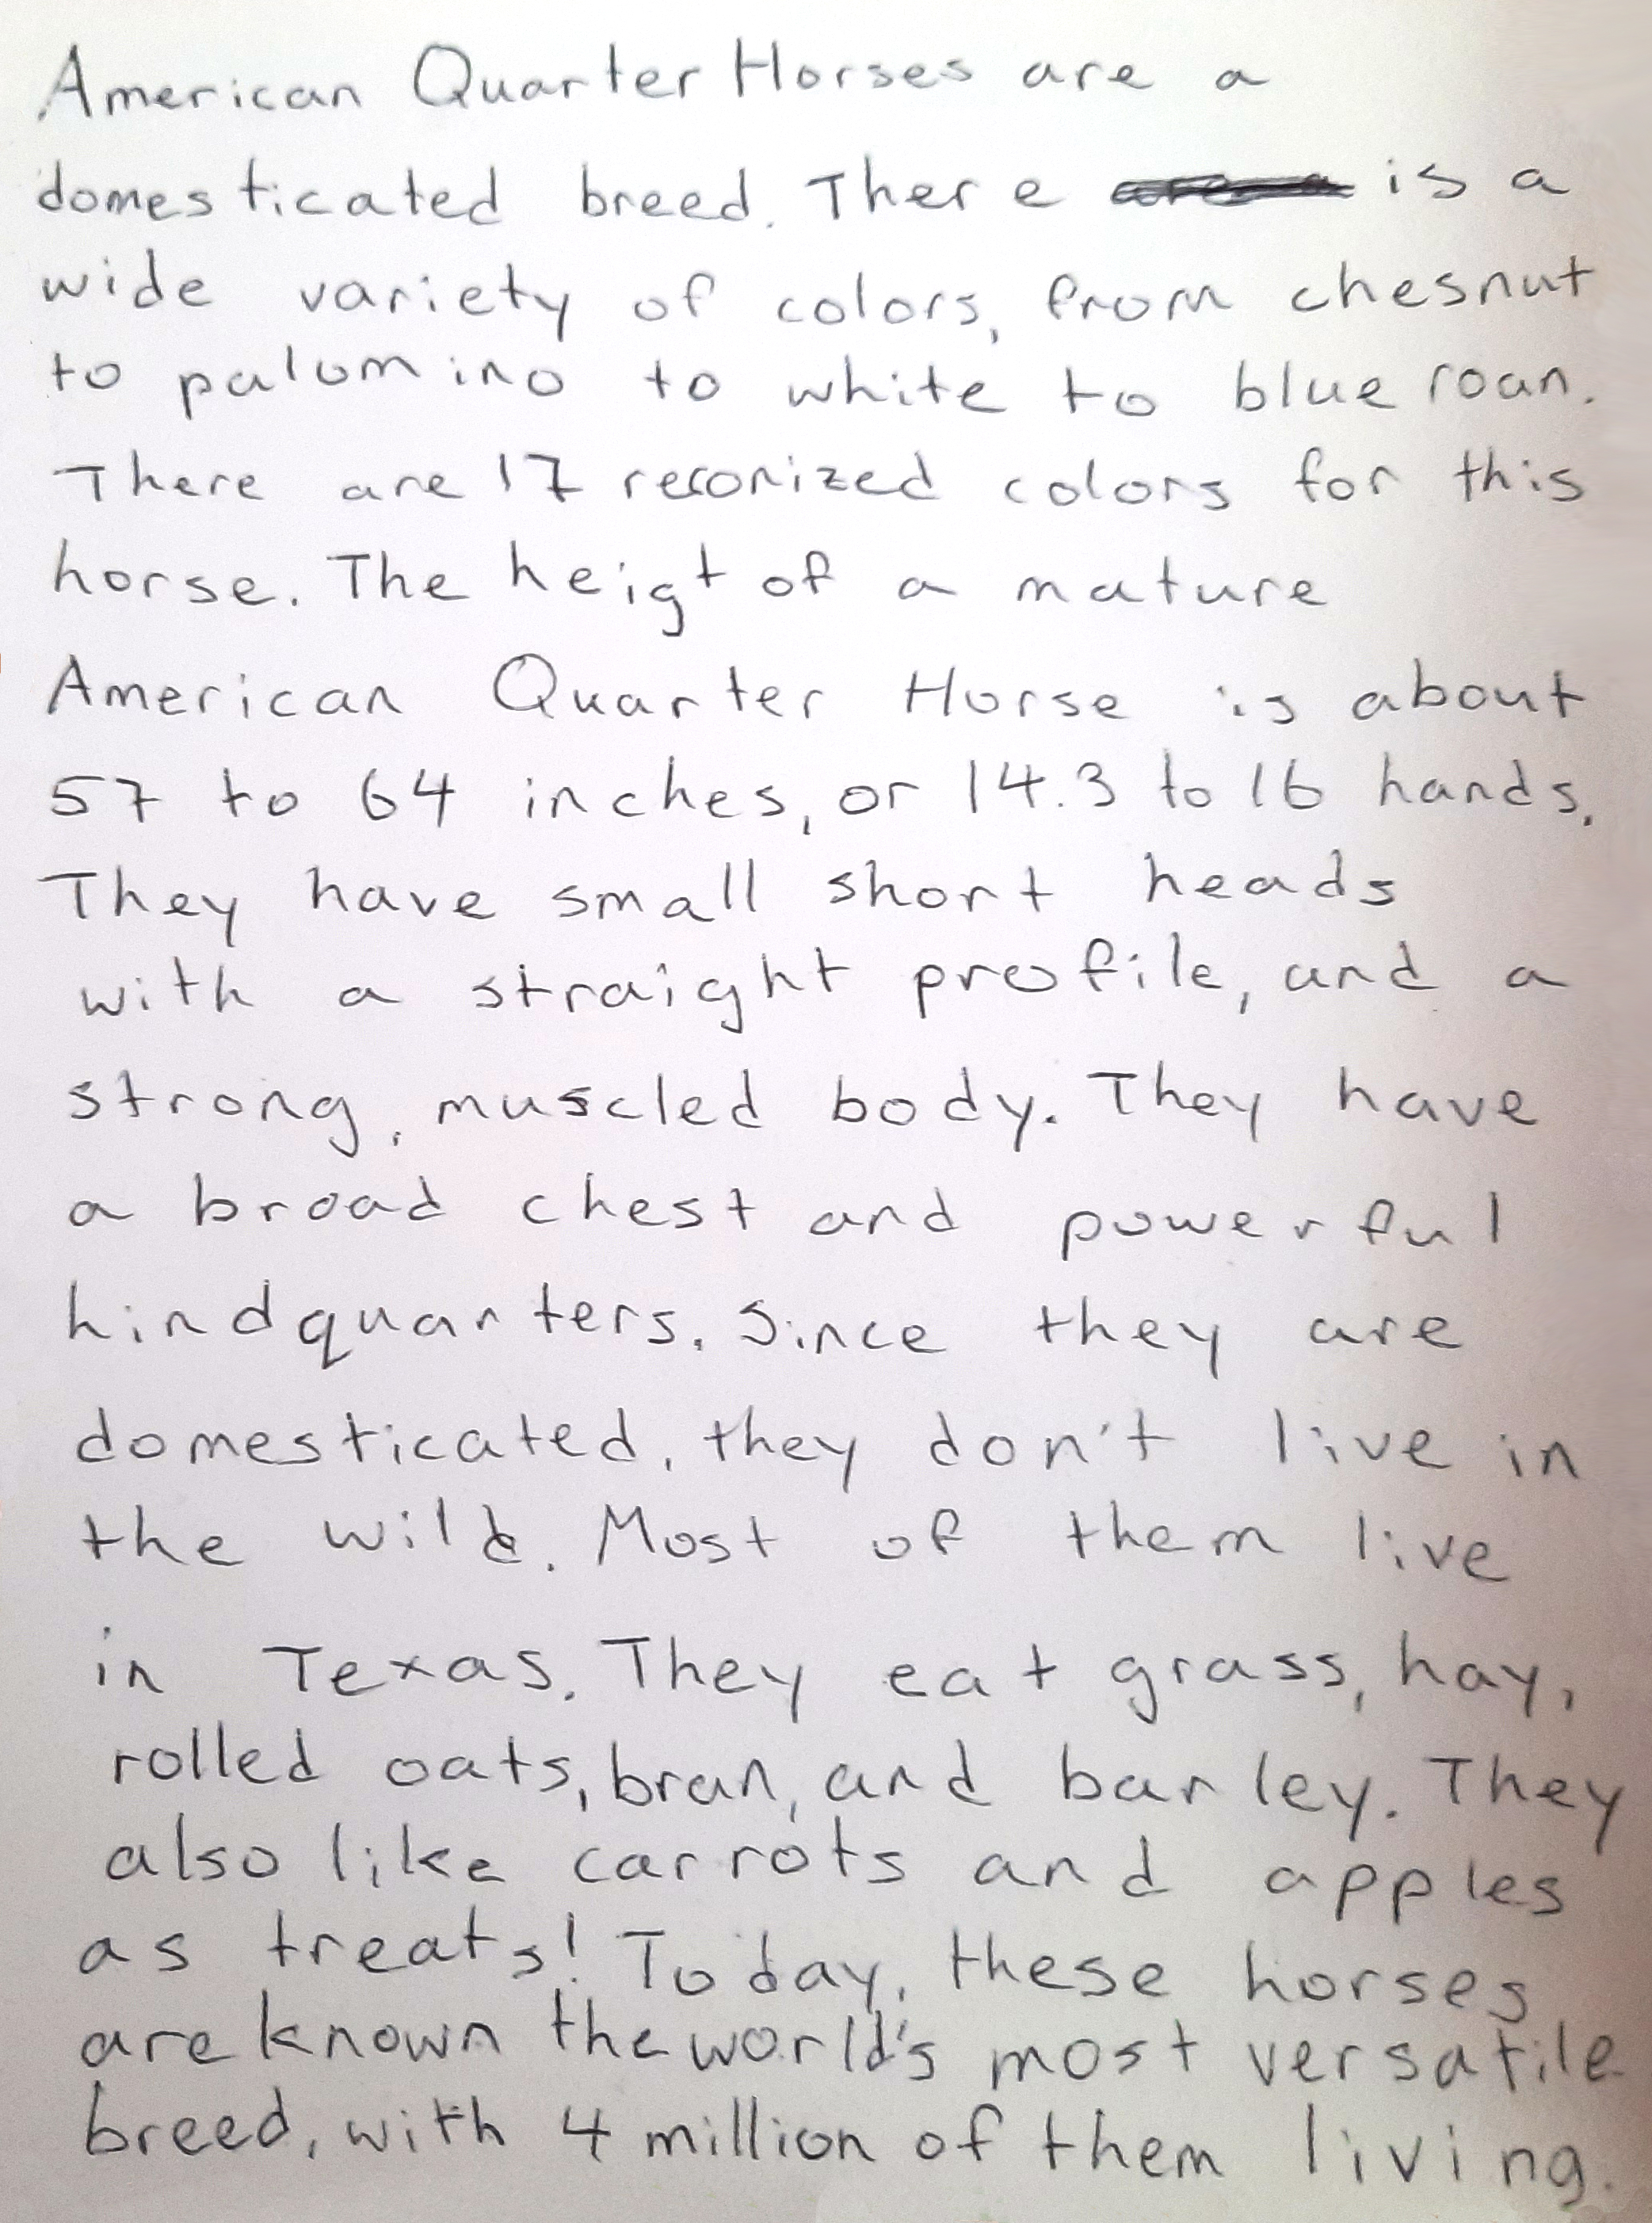 American Quarter Horses are a
domesticated breed. There is a
wide variety of colors, from chesnut
to palomino to white to blue roan.
There are 17 reconized colors for this
horse. The heigt of a mature
American Quarter Horse is about
57 to 64 inches, or 14.3 to 16 hands.
They have small short heads
with a straight profile, and a
strong, muscled body. They have
a broad chest and powerful
hindquarters. Since they are
domesticated, they don't live in
the wild. Most of them live
in Texas. They eat grass, hay,
rolled oats, bran, and barley. They
also like carrots and apples
as treats! Today, these horses
are known the world's most versatile
breed, with 4 million of them living.